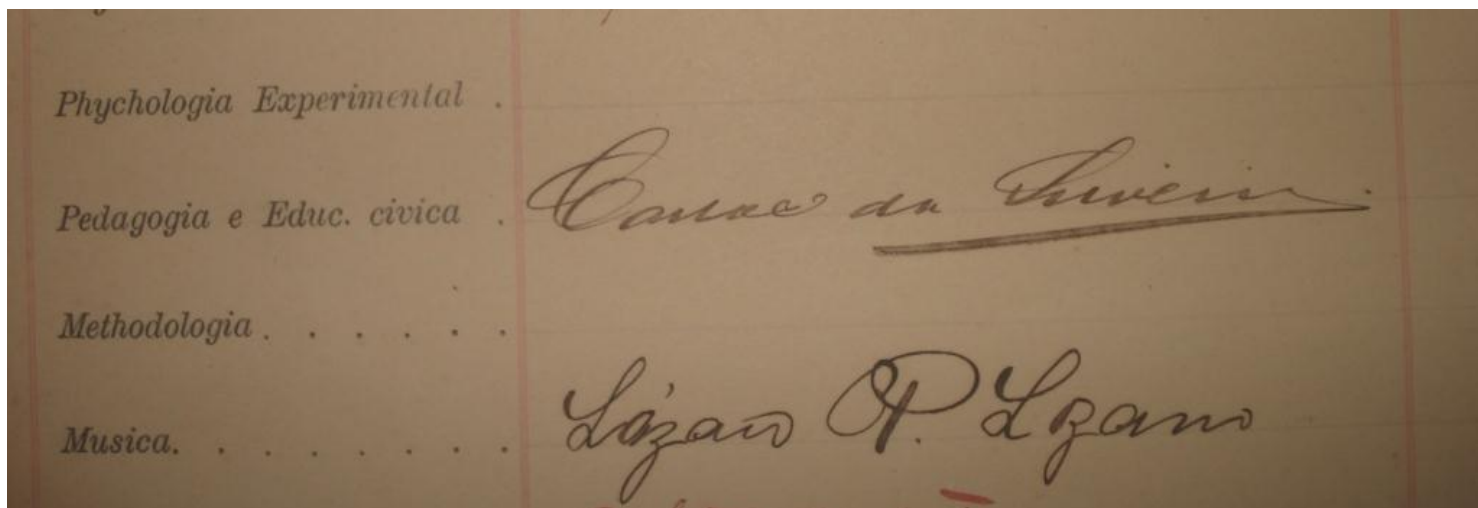 Phychologia Experimental .
Pedagogia e Educ. civica . Carlos da Silveira
Methodologia . . . . . .
Musica. . . . . . . . Lázaro P. Lozano